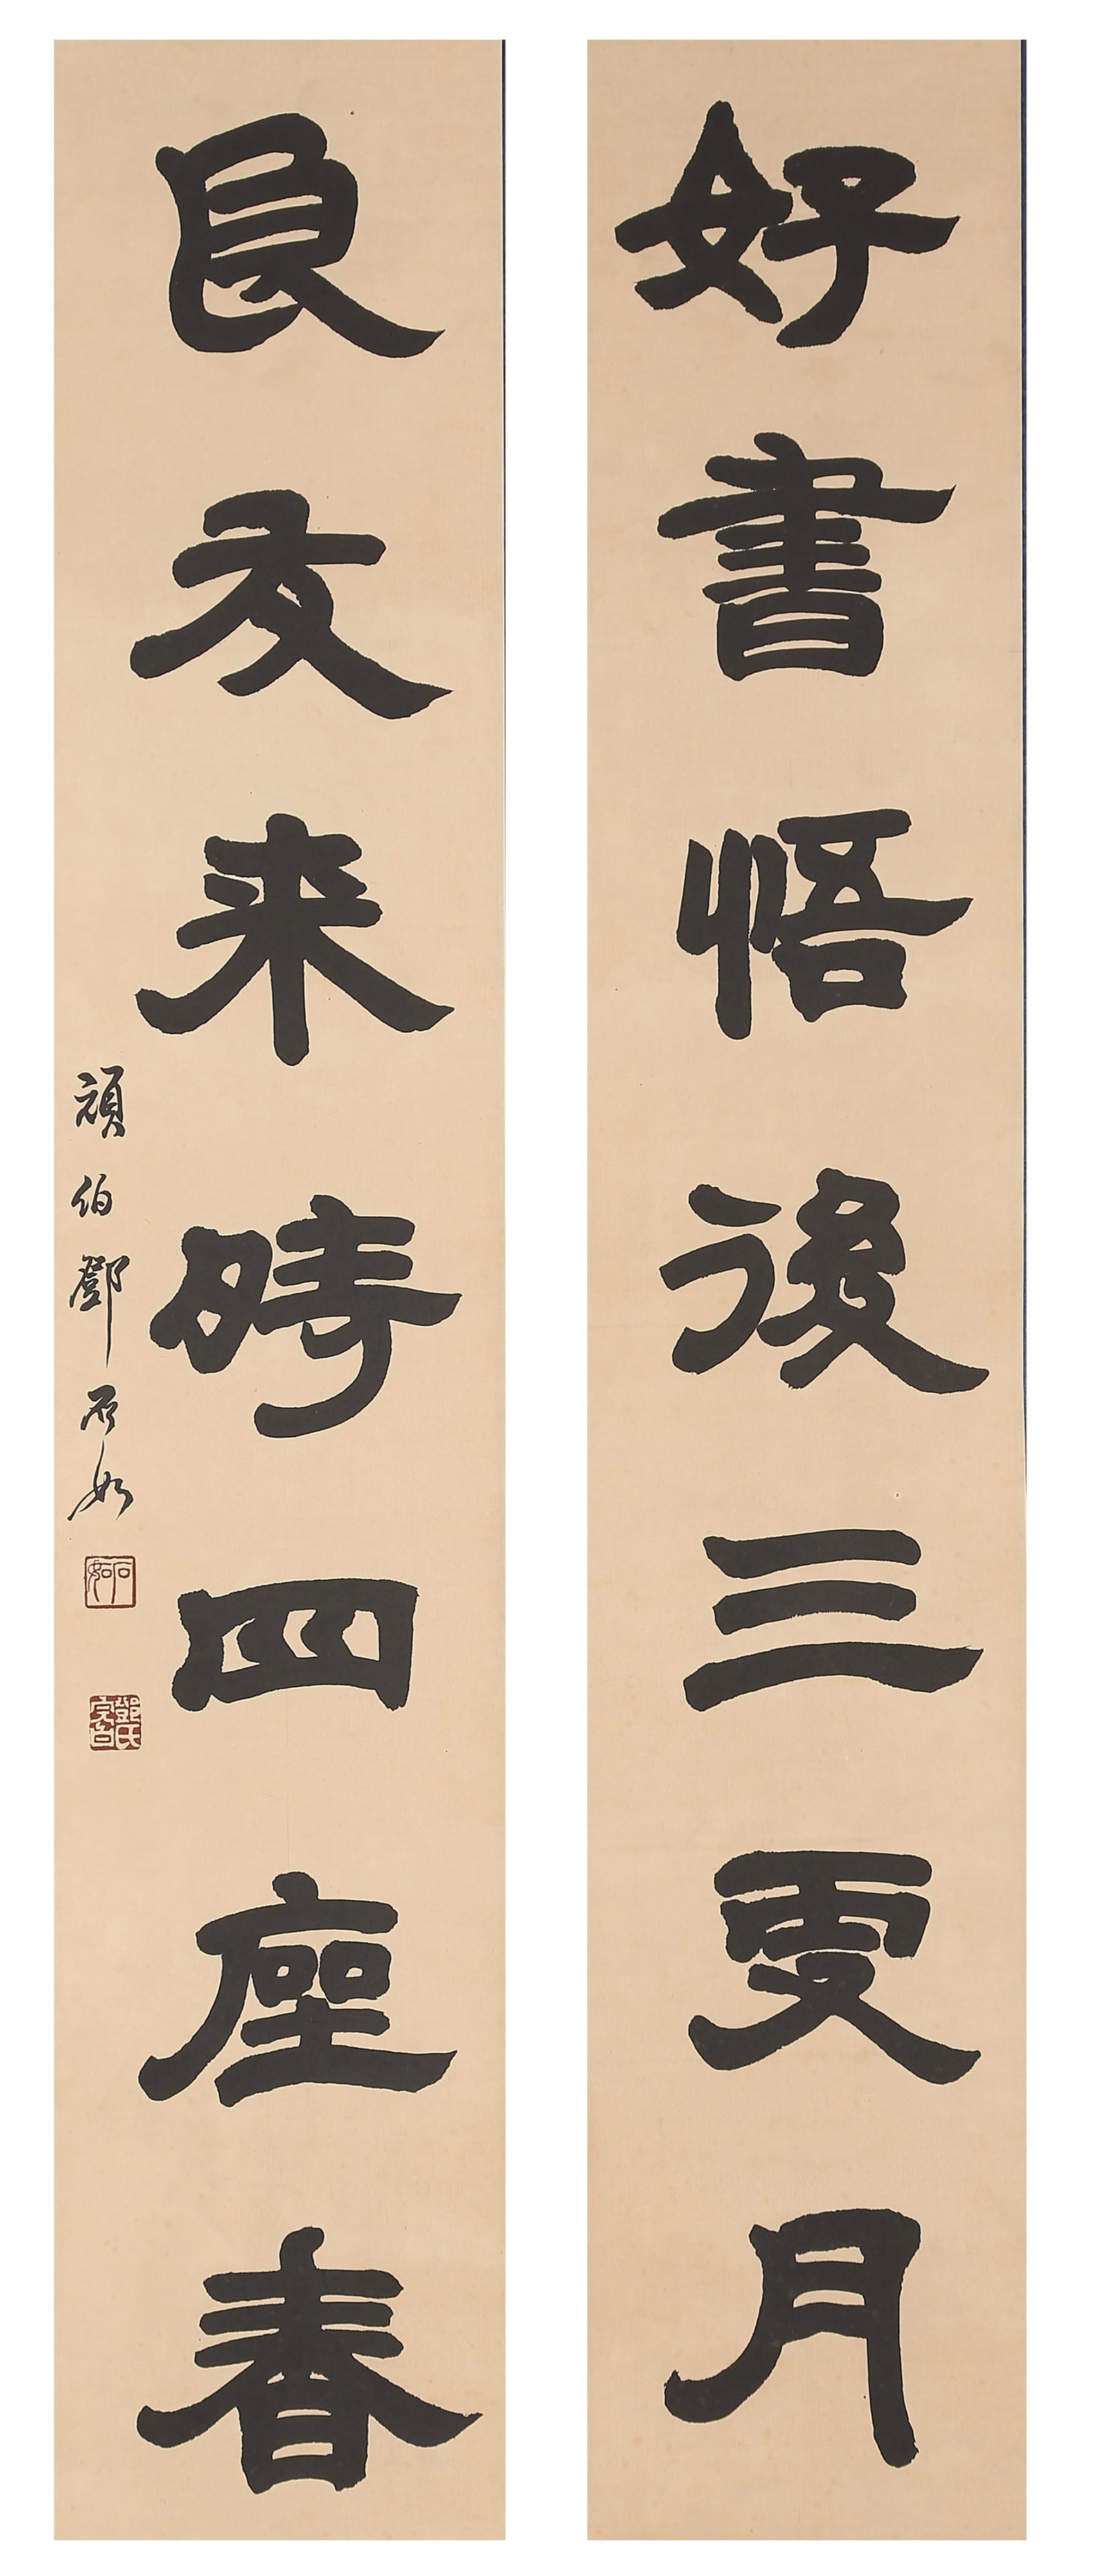 好書悟後三更月
良友来時四座春
頑伯鄧石如
石如
鄧氏完白